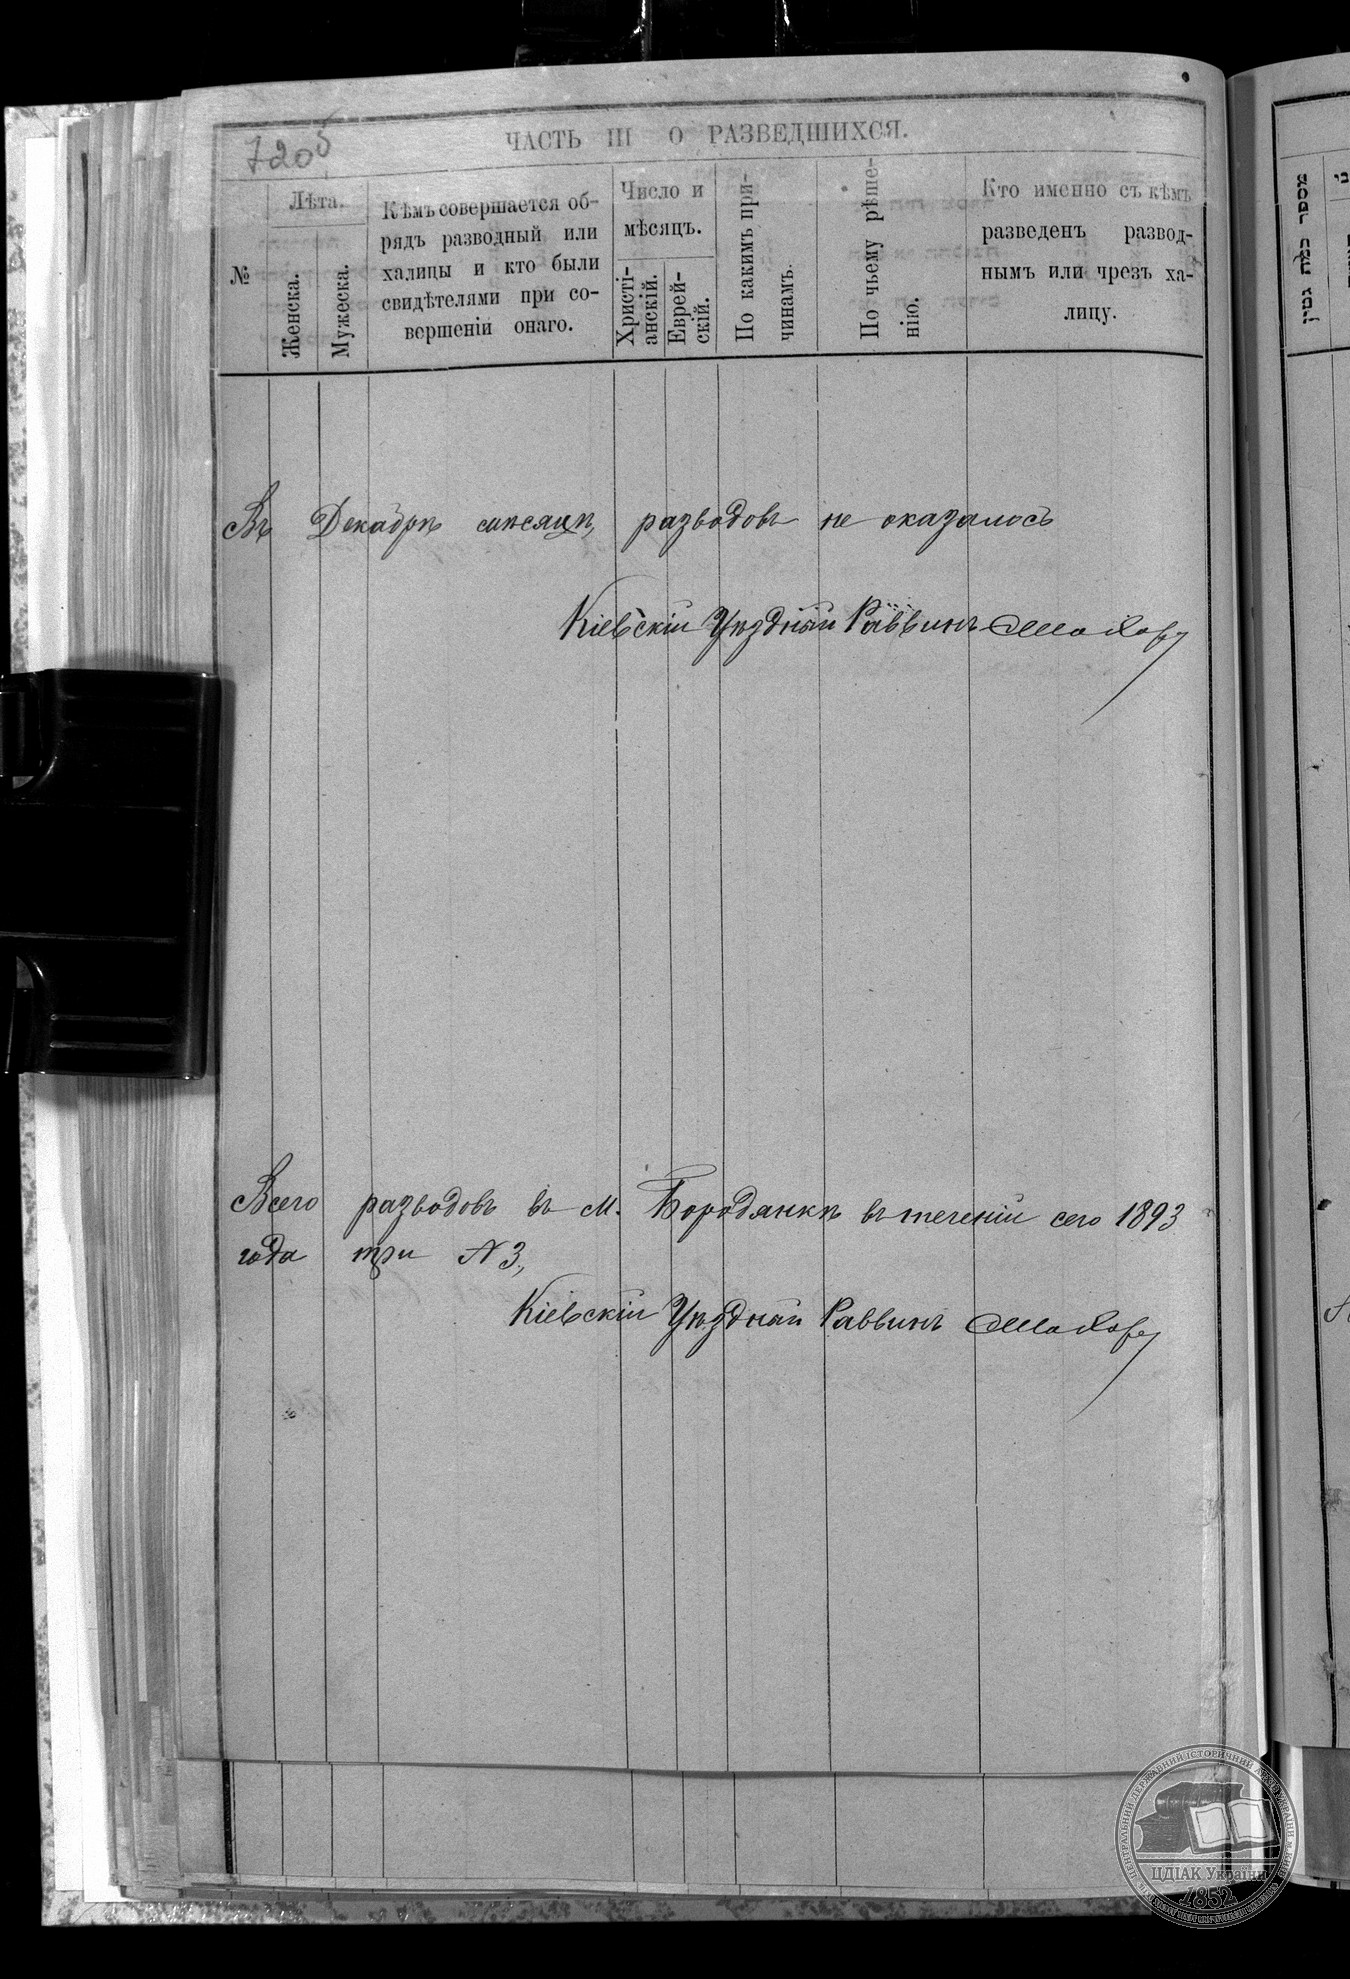 7205
ЧАСТЬ III О РАЗВЕДШИХСЯ.
№
Лѣта.
Женска.
Мужеска.
Кѣмъ совершается об-
рядъ разводный или
халицы и кто были
свидѣтелями при со-
вершеніи онаго.
Число и
мѣсяцъ.
Христі-
анскій.
Еврей-
скій.
По какимъ при-
чинамъ.
По чьему рѣше-
нію.
Кто именно съ кѣмъ
разведенъ развод-
нымъ или чрезъ ха-
лицу.
Въ Декабрѣ мѣсяцѣ, разводовъ не оказалось
Кіевскій Уѣздный Раввинъ
Всего разводовъ въ м. Бородянкѣ въ теченіи сего 1893
года три № 3,
Кіевскій Уѣздный Раввинъ
מספר כמה גטין
ЦЕНТРАЛЬНИЙ ДЕРЖАВНИЙ ІСТОРИЧНИЙ АРХІВ УКРАЇНИ м. КИЇВ
ЦДІАК України
1852